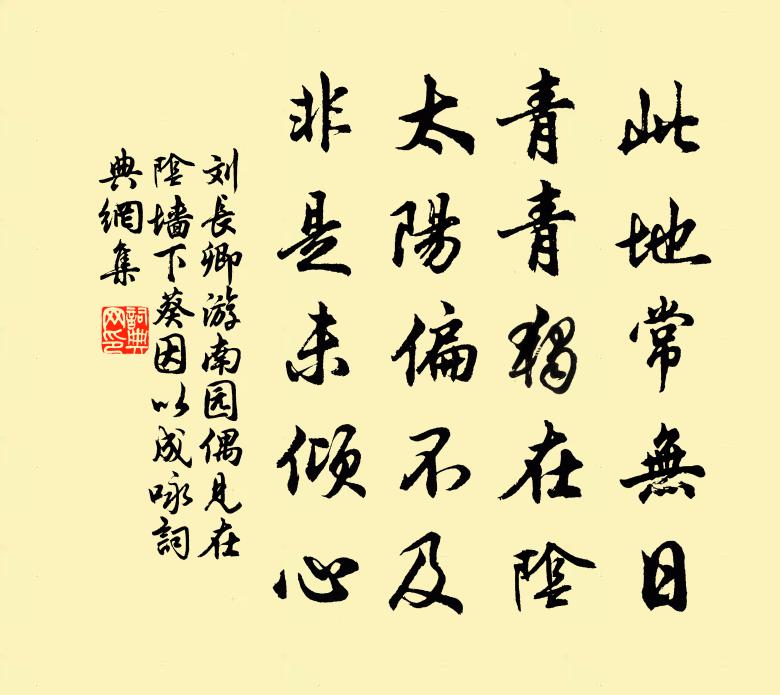 此地常無日
青青獨在陰
太陽偏不及
非是未傾心
刘長卿游南园偶見在
陰墙下葵因以成咏詞
典網集
詞典网印